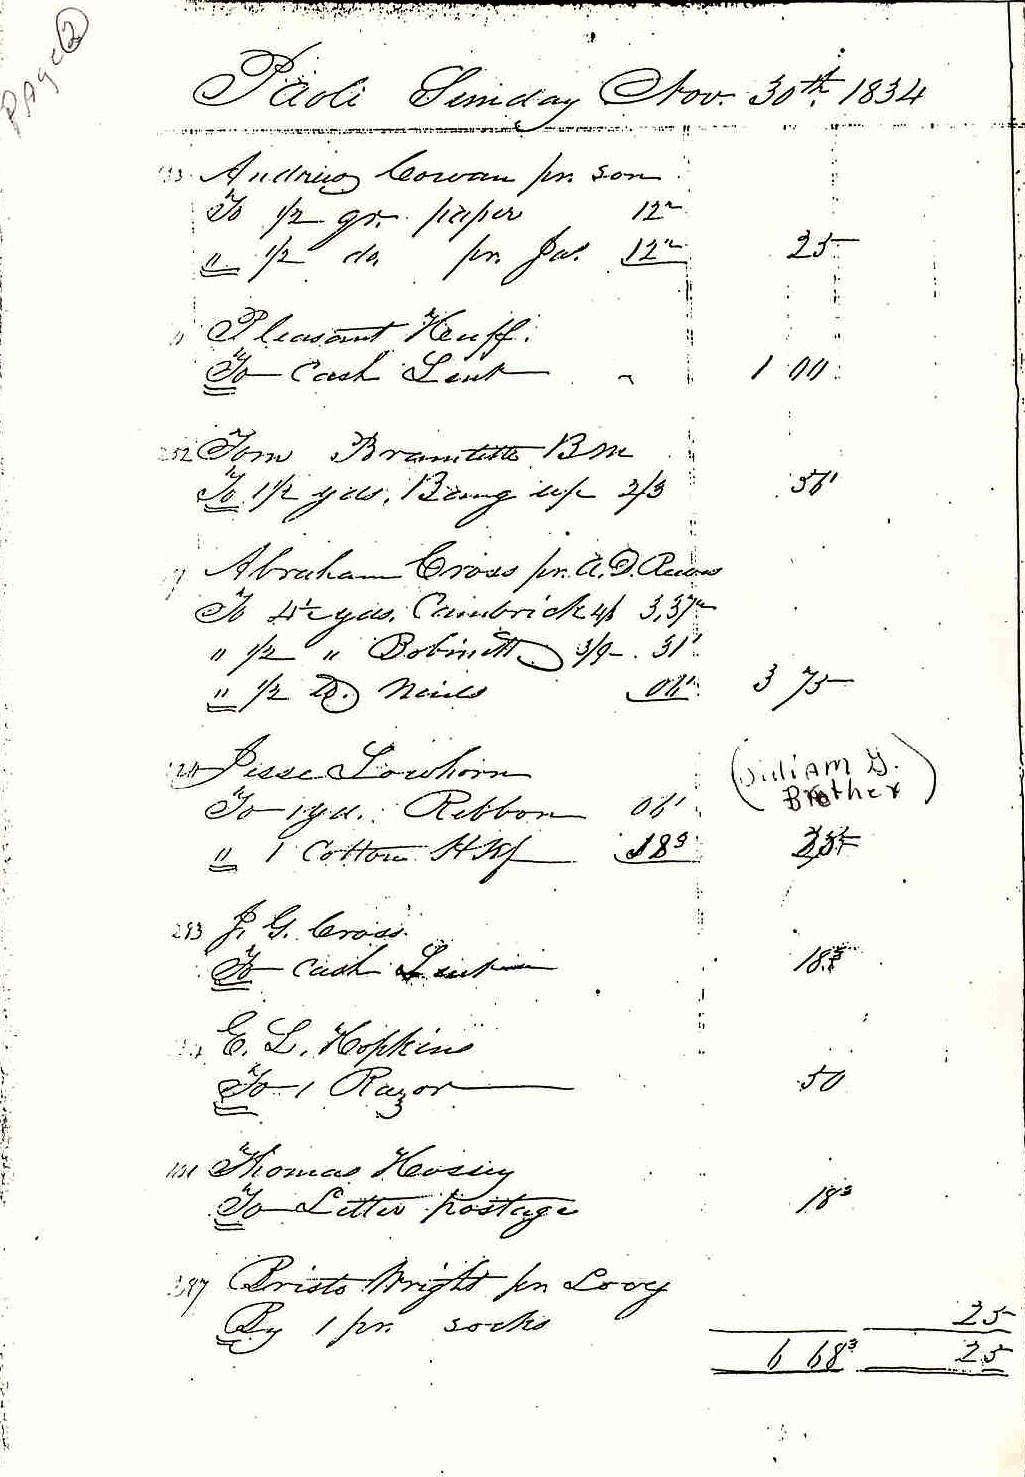 Page 2
Paoli Sunday Nov. 30th. 1834
Andrew Cowan pr. son
To 1/2 qr. paper 12"
" 1/2 do, pr. Jas. 12" 25
Pleasant Huff.
To Cash Lent 1 00
252 Tom Bramlette BM
To 1 1/2 yds. Bang up 2/3 56'
Abraham Cross pr. A. D.
To 4 1/2 yds. Cambrick 4/6 3,37"
" 1/2 " Bobinett 3/9 31'
" 1/2 D. Nails 06' 3 75
Jesse Lowhorn
(William G. Brother)
To 1 yd. Ribbon 06'
" 1 Cotton HKf 18³ 25
293 J. G. Cross.
To Cash Lent 18³
E. L. Hopkins
To 1 Razor 50
Thomas Hossey
To Letter postage 18³
Bristo Wright pr Lovey
By 1 pr. socks 25
6 68³ 25